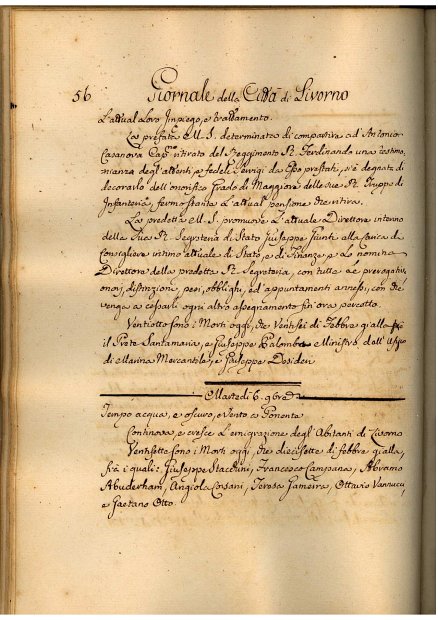 56 Giornale della Città di Livorno
L'attual Loro Impiego, e trattamento.
La prefata M. S. determinata di compartire ad Antonio
Casanova Cap. ritirato del Reggimento R. Ferdinando una testimo
nianza degl'attenti, e fedeli servigi da Esso prestati, s'è degnata di
decorarlo dell'onorifico Grado di Maggiore delle sue R. Truppe di
Infanteria, fermo stante L'attual pensione di ritiro.
La predetta M. S. promuove L'attuale Direttore interno
della Sua R. Segreteria di Stato Giuseppe Giunti alla carica di
Consigliere intimo attuale di Stato, e di Finanze, e Lo nomina
Direttore della predetta R. Segreteria, con tutte le prerogative,
onori, distinzioni, pesi, obblighi, ed appuntamenti annessi, con che
venga a cessarli ogni altro assegnamento fin'ora percetto.
Ventiotto sono i Morti oggi, che Ventisei di Febbre gialla
il Prete Santamaria, e Giuseppe Palomba Ministro dell'
di Marina Mercantile, e Giuseppe Desideri
Martedì 6. 9bre
Tempo acqua, e oscuro, e Vento a Ponente
Continova, e cresce L'emigrazione degl'Abitanti di Livorno
Ventisette sono i Morti oggi, che diecisette di febbre gialla,
frà i quali: Giuseppe Stacchini, Francesco Campana, Abramo
Abuderham, Angiola Corsani, Teresa Gameira, Ottavio Vannucci,
e Gaetano Otto.